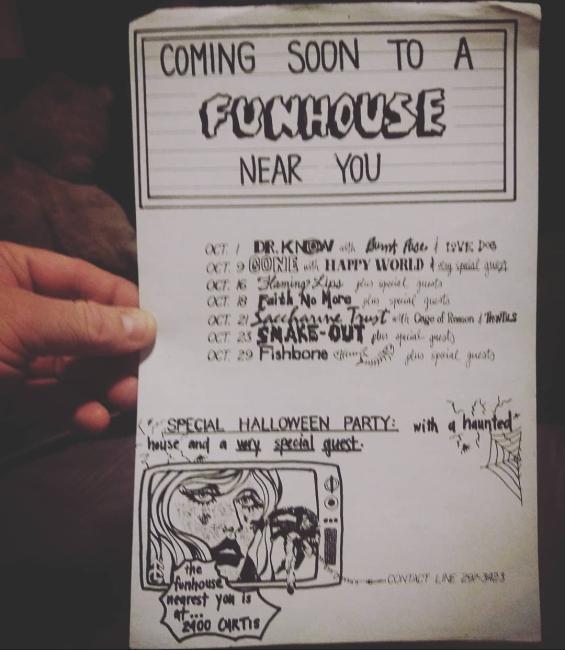 COMING SOON TO A
FUNHOUSE
NEAR YOU
OCT. 1 DR. KNOW with
OCT. 9 GONE with HAPPY WORLD & very special guest
OCT. 16 Flaming Lips plus special guests
OCT. 18 Faith No More plus special guests
OCT. 21 Saccharine Trust with Cage of Reason /
OCT. 25 SNAKE-OUT plus special guests
OCT. 29 Fishbone plus special guests
SPECIAL HALLOWEEN PARTY: with a haunted
house and a very special guest.
the
funhouse
nearest you is
at...
2400 CURTIS
CONTACT LINE 297-3423